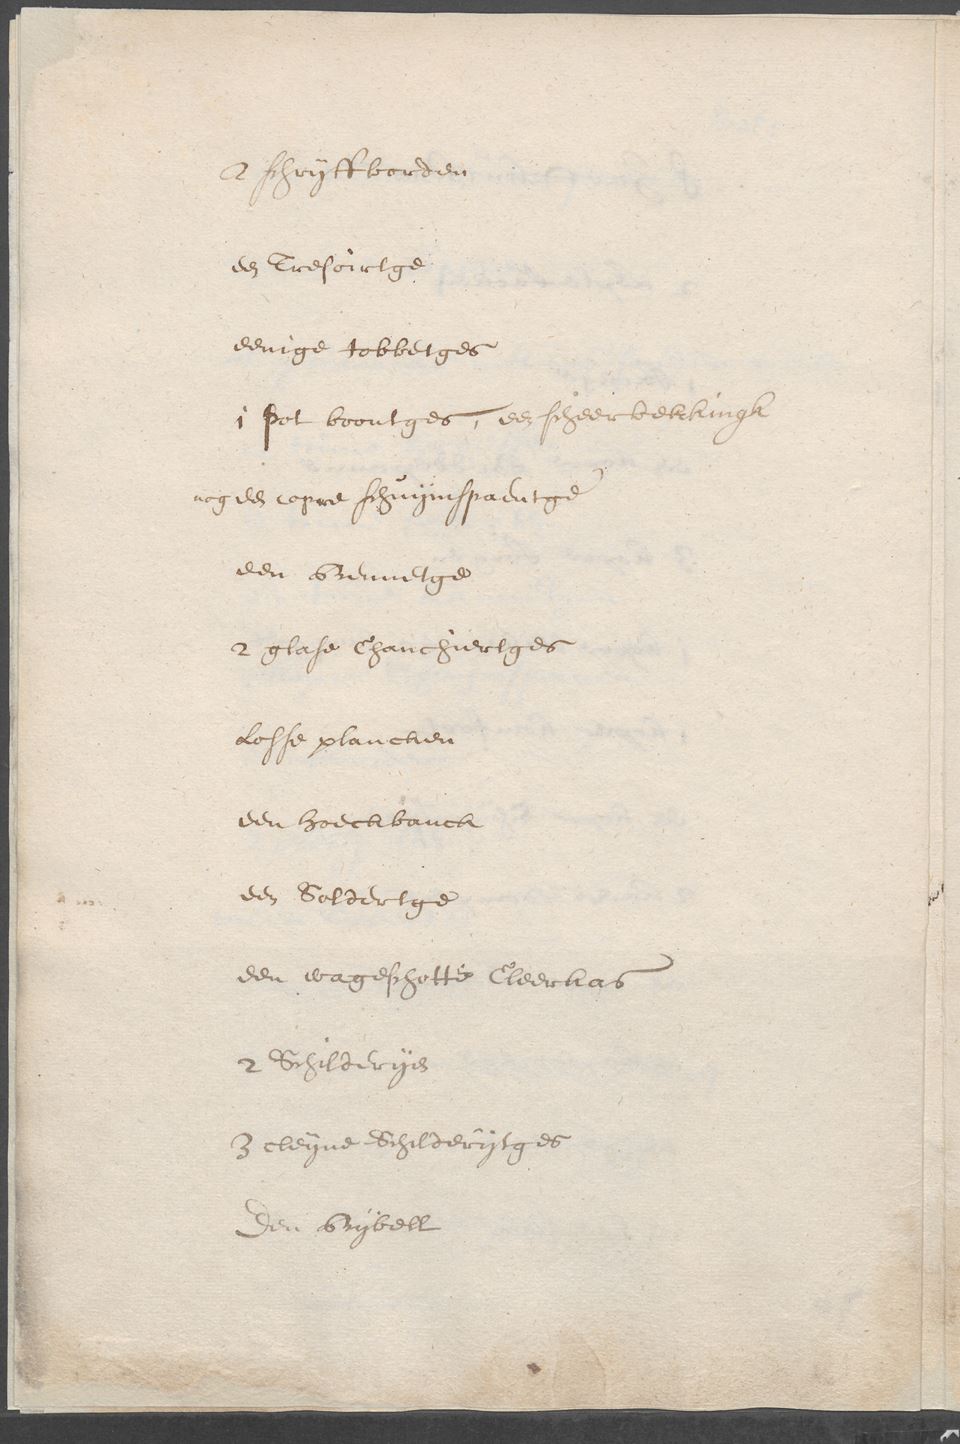 2 schrijffborden
een Tresoirtge
eenige tobbetges
1 pot boontges, een scheerbekkingh
nog een copre schuijmspaentge
een
2 glase Chanchiertges
Losse plancken
een hoeckbanck
een Soldertge
een wageschotte Cleerkas
2 Schilderijen
3 cleijne Schilderijtges
Een Bijbell